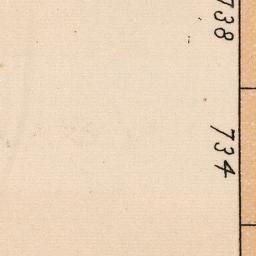 738
734